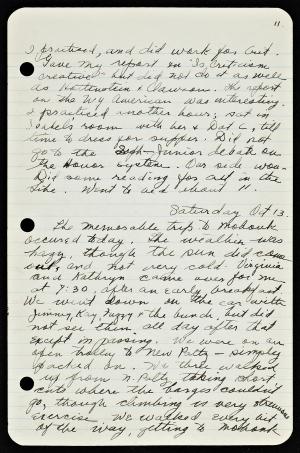 11
I practised, and did work for Crit.
Gave my report on "Is Criticism
Creative" but did not do it as well
as Hottenstein & Clawson. The report
on the Wy American was interesting.
I practiced another hour; sat in
Isabel's room with her & Dot C, till
time to dress for supper. Did not
go to the Soph-Junior debate on
the Honor System. Our side won.
Did some reading for Crit in the
Libe. Went to bed about 11.
Saturday Oct 13.
The memorable trip to Mohonk
occured today. The weather was
hazy, though the sun did come
out, and not very cold. Virginia
and Kathryn came over for me
at 7:30, after an early breakfast
We went down on the car with
Jimmy, Kay, Peggy & the bunch, but did
not see them all day after that
except in passing. We were on an
open trolley to New Paltz – simply
packed on. We three walked
up from N. Paltz, taking short
cuts where the barges couldn't
go, though climbing is very strenuous
exercise. We walked every bit
of the way, getting to Mohonk